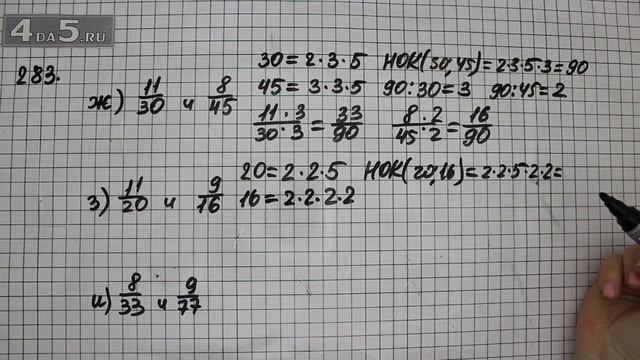 4DA5.RU
283.
ж) 11/30 и 8/45
30 = 2·3·5 НОК(30,45) = 2·3·5·3 = 90
45 = 3·3·5 90:30 = 3 90:45 = 2
11·3/30·3 = 33/90 8·2/45·2 = 16/90
з) 11/20 и 9/16
20 = 2·2·5 НОК(20,16) = 2·2·5·2·2 =
16 = 2·2·2·2
и) 8/33 и 9/77